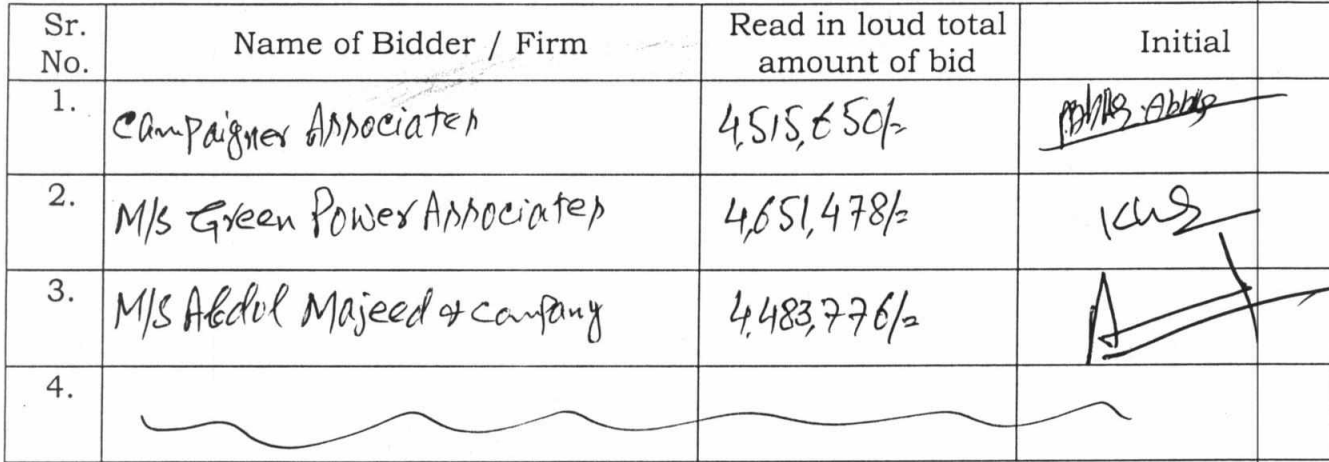 Sr. No. Name of Bidder / Firm Read in loud total amount of bid Initial
1. Campaigner Associates 4,515,650/=
2. M/s Green Power Associates 4,651,478/=
3. M/s Abdul Majeed & company 4,483,776/=
4.